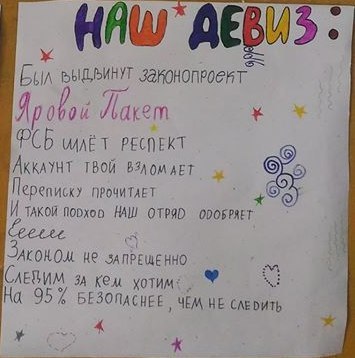 НАШ ДЕВИЗ:
Был выдвинут законопроект
Яровой Пакет
ФСБ шлёт респект
Аккаунт твой взломает
Переписку прочитает
И такой подход наш отряд одобряет
Еееее
Законом не запрещенно
Следим за кем хотим
На 95% безопаснее, чем не следить